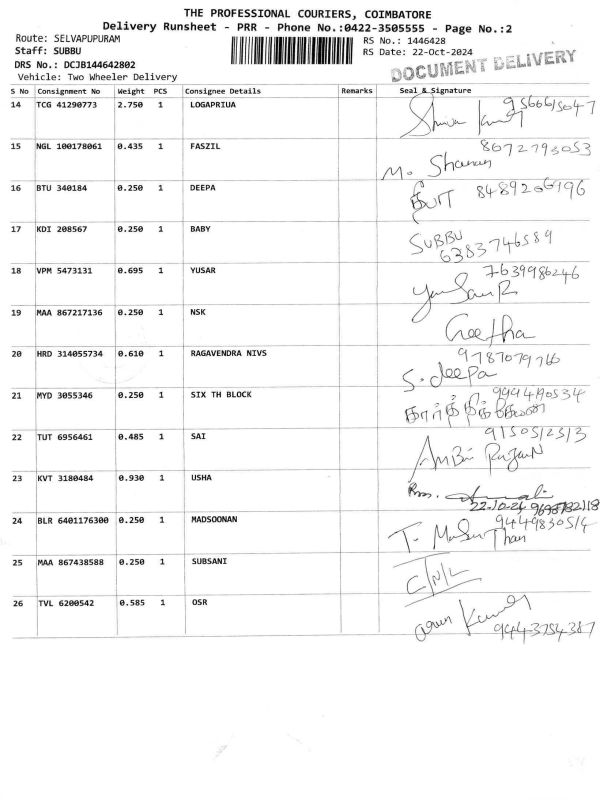 THE PROFESSIONAL COURIERS, COIMBATORE
Delivery Runsheet - PRR - Phone No.:0422-3505555 - Page No.:2
Route: SELVAPUPURAM
RS No.: 1446428
Staff: SUBBU
RS Date: 22-Oct-2024
DRS No.: DCJB144642802
DOCUMENT DELIVERY
Vehicle: Two Wheeler Delivery
S No Consignment No Weight PCS Consignee Details Remarks Seal & Signature
14 TCG 41290773 2.750 1 LOGAPRIUA
9566615047
15 NGL 100178061 0.435 1 FASZIL 8072793053
M. Shanan
16 BTU 340184 0.250 1 DEEPA தீபா 8489206196
17 KDI 208567 0.250 1 BABY SUBBU
6383746589
18 VPM 5473131 0.695 1 YUSAR 7639986246
19 MAA 867217136 0.250 1 NSK
Geetha
20 HRD 314055734 0.610 1 RAGAVENDRA NIVS 9787079766
S. deepa
21 MYD 3055346 0.250 1 SIX TH BLOCK 9994190534
22 TUT 6956461 0.485 1 SAI 9150512313
23 KVT 3180484 0.930 1 USHA
22-10-24
24 BLR 6401176300 0.250 1 MADSOONAN 9449830514
25 MAA 867438588 0.250 1 SUBSANI
C/N/L
26 TVL 6200542 0.585 1 OSR
9443754387